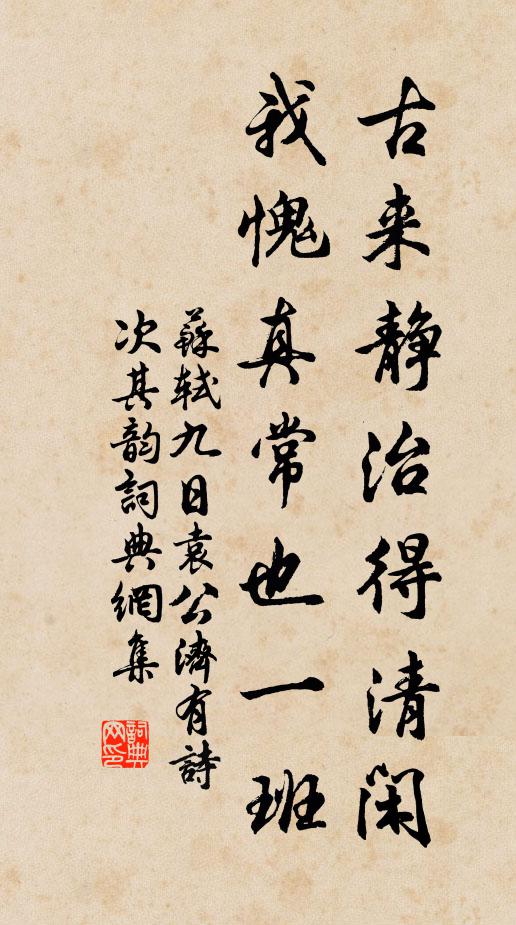 古来静治得清闲
我愧真常也一班
蘇軾九日袁公濟有詩
次其韵詞典網集
詞典网印